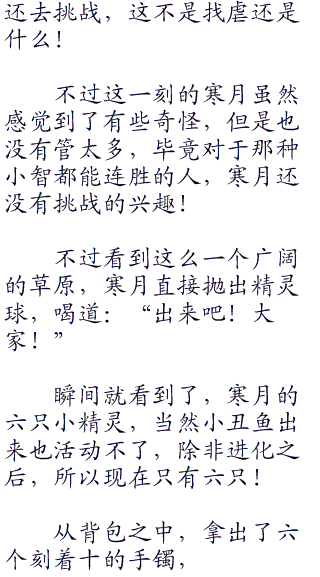 还去挑战，这不是找虐还是
什么！
不过这一刻的寒月虽然
感觉到了有些奇怪，但是也
没有管太多，毕竟对于那种
小智都能连胜的人，寒月还
没有挑战的兴趣！
不过看到这么一个广阔
的草原，寒月直接抛出精灵
球，喝道：“出来吧！大
家！”
瞬间就看到了，寒月的
六只小精灵，当然小丑鱼出
来也活动不了，除非进化之
后，所以现在只有六只！
从背包之中，拿出了六
个刻着十的手镯，